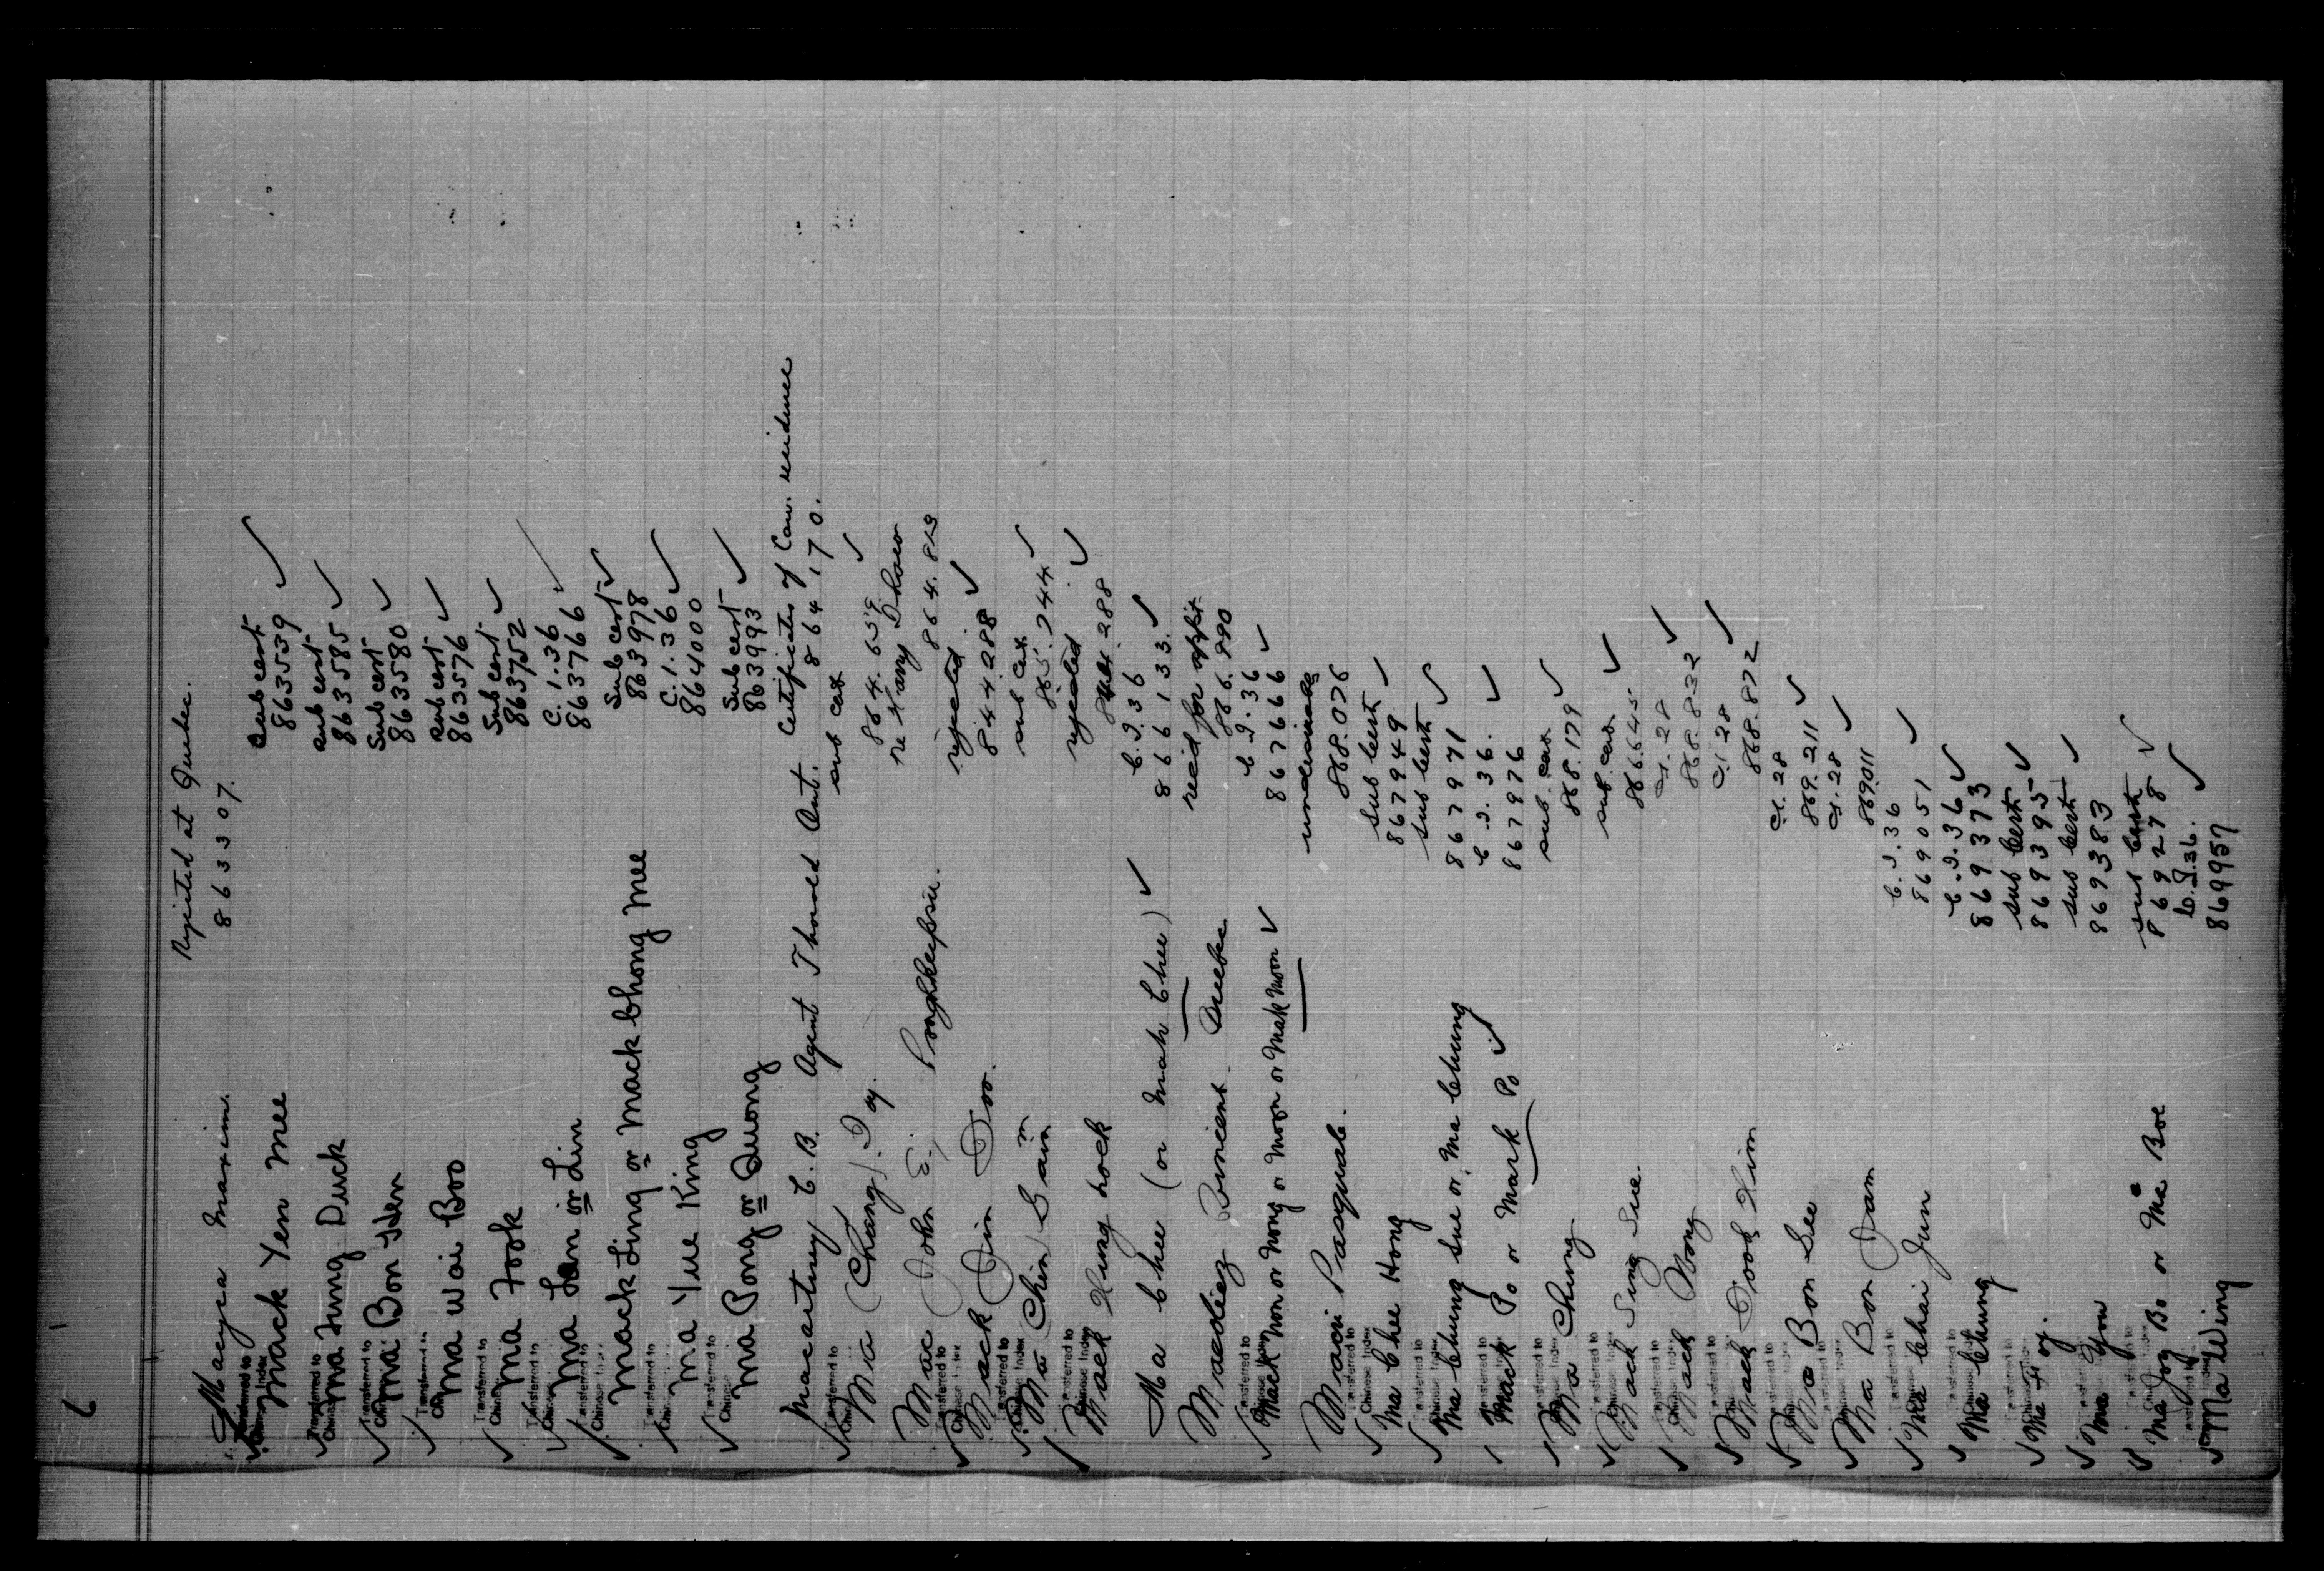 6
Macyca Maxim. Rejected at Quebec.
863307.
Transferred to Chinese Index
Mack Yen Mee Sub cert
863539 ✓
Transferred to Chinese Index
Ma Tung Duck Sub cert
863585 ✓
Transferred to Chinese Index
Ma Bon Hen Sub cert
863580 ✓
Transferred to
Ma Wai Boo Sub cert
863576 ✓
Transferred to
Ma Fook Sub cert
863752 ✓
Transferred to
Ma Lan or Lin C.1.36
863766 ✓
Transferred to
Mack Ling or Mack Chong Mee Sub cert
863978 ✓
Transferred to
Ma Yue King C.1.36
864000 ✓
Transferred to
Ma Pong or Quong Sub cert
863993 ✓
Macartney C.B. Agent Thorold Ont. Certificates of Can. residence
864170.
Transferred to
Ma (Chang) Toy. sub cert
864.659 ✓
Mac John E. Poughkeepsie. re Harry Shaw
864.829
Transferred to Chinese Index
Mack Jin Doo. rejected
844288 ✓
Transferred to Chinese Index
Ma Chin Sain sub cert
865.244 ✓
Transferred to Chinese Index
Mack Hung hock rejected
844.288 ✓
Ma Chee (or Mah Chee) ✓ C.I.36
866133. ✓
Macdiez Vincent Quebec recd for applt.
866.990
Transferred to Chinese Index
Mack Non or Nong or Moon or Mak Moon ✓ C.I.36
867666 ✓
Macri Pasquale. undesirable
868.076
Transferred to Chinese Index
Ma Chee Hong Sub Cert
867949 ✓
Transferred to Chinese Index
Ma Chung Sue or Ma Chung sub Cert
867971 ✓
Transferred to Chinese Index
Mack Po or Mark Po ✓ C.I.36.
867976 ✓
Transferred to Chinese Index
Ma Chung sub. cert.
868.179 ✓
Transferred to Chinese Index
Mack Sing Sue sub. cert.
866.645 ✓
Transferred to Chinese Index
Mack Wong C.I. 28
868.832 ✓
Transferred to Chinese Index
Mack Him C.I. 28
868.872 ✓
Transferred to
Ma Bon See C.I. 28
869.211 ✓
Transferred to
Ma Bon Jam C.I. 28
869.011 ✓
Transferred to
Ma Chai Jun C.I.36
869051 ✓
Transferred to
Ma Chung C.I.36
869373 ✓
Transferred to
Ma Hoy. Sub Cert
869395 ✓
Transferred to
Ma Yon sub Cert
869383 ✓
Transferred to
Ma Joy Bo or Ma Boe sub Cert
869278 ✓
Transferred to
Ma Wing C.I.36.
869957 ✓